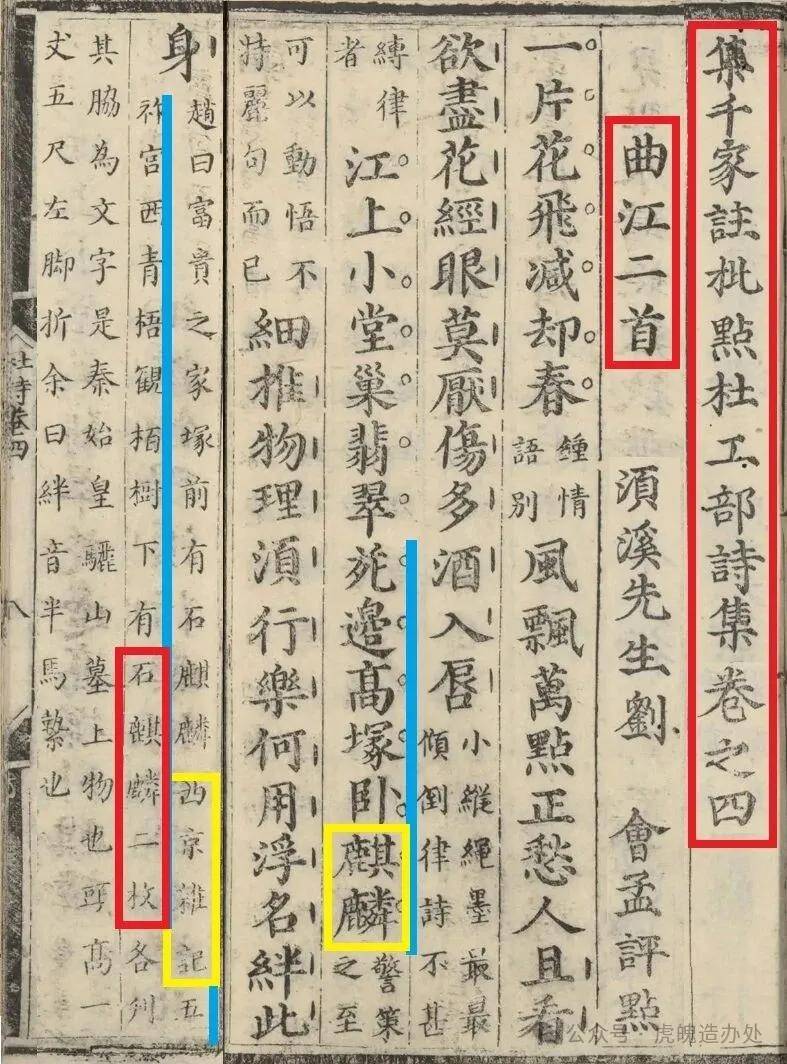 集千家註批點杜工部詩集卷之四
曲江二首 湏溪先生劉 會孟評點
一片花飛减却春 鍾情語別 風飄萬點正愁人且看
欲盡花經眼莫厭傷多酒入唇 小縱繩墨最最傾倒律詩不甚
縛律者 江上小堂巢翡翠苑邉髙塚卧麒麟 警策之至
可以動悟不特麗句而已 細推物理湏行樂何用浮名絆此
身 趙曰富貴之家塚前有石麒麟西京雜記五
祚宫西青梧観栢樹下有石麒麟二枚各刋
其脇為文字是秦始皇驪山墓上物也頭髙一
丈五尺左脚折余曰絆音半馬縶也
杜詩卷四
八
公众号 虎魄造办处